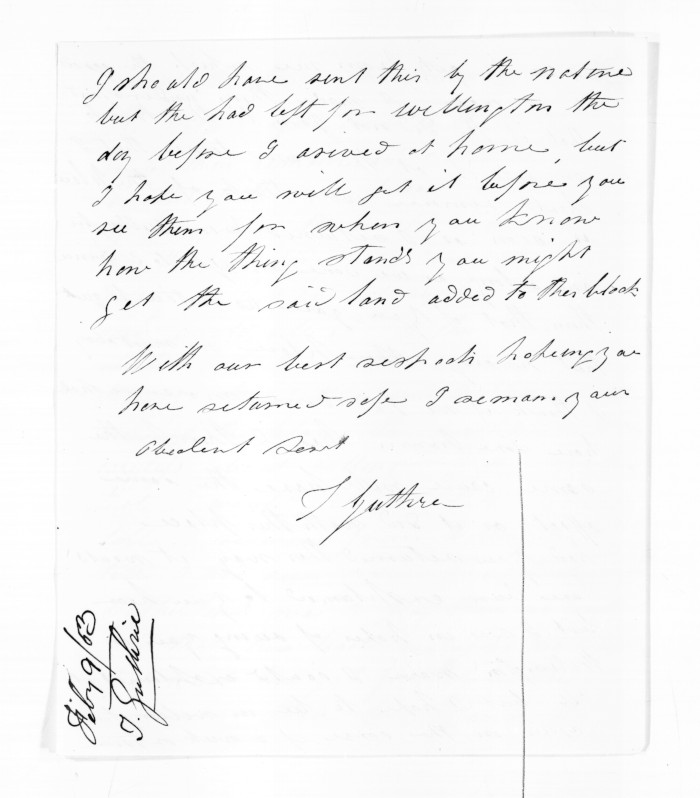 I should have sent this by the native
but the had left for wellington the
day before I arived at home, but
I hope you will get it before you
see them for when you know
how the thing stands you might
get the said land added to this block
With our best respects hopeing you
have returned safe I reman your
obedent servt
T Guthrie
Feby 9/63
T. Guthrie